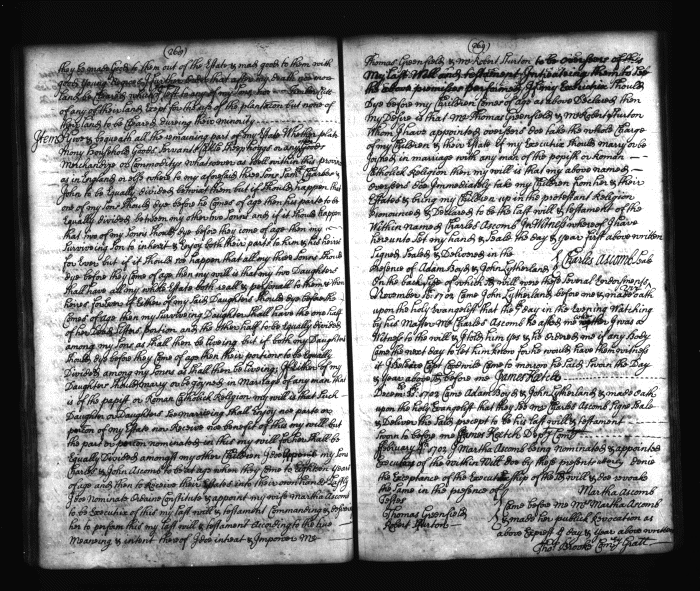 (260)
they be made Good to them out of the Estate & made good to them with
good Young
of any of their land Except for the use of the plantation but none of
their land to be Cleared during their minority
Item I Give & bequeath all the remaining part of my Estate Whether plate
Mony Household Goods Servants Cattle Sheep hoggs or any
Merchandize or Commoditys whatsoever as well within this province
as in England or else where to my aforesaid three Sons Charles &
John to be Equally divided between them but if it should happen that
one of my Sons should dye before he Comes of age then his part to be
Equally divided between my other two Sons and if it should happen
that two of my Sons should dye before they come of age then my
Surviveing Son to inherit & Enjoy both their parts to him & his heires
for Ever but if it should so happen that all my three Sons should
dye before they Come of age then my will is that my two Daughters
shall have all my whole Estate both reall & personall to them & their
heires for Ever if Either of my said Daughters should dye before she
Comes of age then my Surviveing Daughter shall have the one half
of her Dead Sisters portion and the other half to be Equally divided
among my Sons as shall then be liveing but if both my Daughters
should dye before they Come of age then their portions to be Equally
Divided among my Sons as shall then be liveing; if Either of my
Daughters should marry or be Joyned in Marriage of any man that
is of the papist or Roman Catholick Religion my will is that such
Daughter or Daughters soe marrieing shall Enjoy noe parte or
portion of my Estate nor Receive noe benefit of this my will but
the part or portion nominated in this my will for her shall be
Equally Divided amongst my other Children I doe appoint my Sons
Charles & John Ascomb to be at age when they Come to Eighteen years
of age and then to Receive their Estates into their own hands Lastly
I doe Nominate Ordaine Constitute & appoint my wife Martha Ascomb
to be Executrix of this my last will & testament Commanding &
her to perform this my last will & testament According to the true
Meaneing & intent thereof I doe intreat & Impower Mr
(261)
Thomas Greenfield & Mr Robert Thurton to be overseers of this
My Last Will and testament Intreateing them to see
the above premisses performed if my Executrix Should
Dye before my Children Comes of age as above Declared then
my Desire is that Mr Thomas Greenfield & Mr Robert Thurton
Whom I have appointed overseers doe take the whole Charge
of my Children & their Estate if my Executrix should Marry or be
Joyned in marriage with any man of the popish or Roman
Catholick Religion then my will is that my above named
overseers doe Immediately take my Children from her & their
Estates & bring my Children up in the protestant Religion
Pronounced & Declared to be the last will & testament of the
Within Named Charles Ascomb In Witness whereof I have
hereunto set my hand & Seale the day & year first above written
Signed Sealed & Delivered in the
presence of Adam Boyd & John Lytherland } Charles Ascomb Seale
On the back side of which will was these several Endorsments
November 16 1702 Came John Lytherland before me & made oath
upon the holy Evangelist that the day in the Evening Watching
by his Master Mr Charles Ascomb he asked me whether I was a
Witness to the will & I told him yes & he ordered me if any Body
Came the next day to let him know for he would have them witness
it I believe Capt will Come to morrow he said Sworn the Day
& year above before me James Keech
Decembr 1702 Came Adam Boyd & John Lytherland & made oath
upon the holy Evangelist that they see Mr Charles Ascomb Signe Seale
& Deliver the said precept to be his last will & testament
Sworn to before me James Keech Depty Com
February 1702 I Martha Ascomb being nominated & appointed
Executrix of the within Will doe by these presents utterly Denie
the Exceptance of the Executrixship of the will & doe revoake
the same in the presence of
Testes Martha Ascomb
Thomas Greenfield
Robert Thurton
Came before me Mrs Martha Ascomb
& made her publick Revocation as
above Exprest the day & year above written
Tho: Brooke Comr Gratt